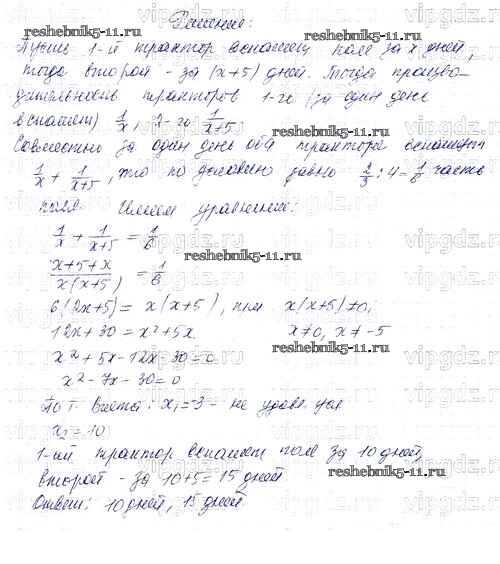 Решение:
reshebnik5-11.ru
Пусть 1-й трактор вспашет поле за x дней,
тогда второй - за (x+5) дней. Тогда произво-
дительность тракторов 1-го (за один день
вспашет) 1/x, 2-го 1/x+5
Совместно за один день оба трактора вспашут
1/x + 1/(x+5), что по условию равно 2/3 : 4 = 1/6 часть
поля. Имеем уравнение:
1/x + 1/x+5 = 1/6
x+5+x / x(x+5) = 1/6
6(2x+5) = x(x+5), при x(x+5)≠0,
12x+30 = x²+5x x≠0, x≠-5
x²+5x-12x-30=0
x²-7x-30=0
По т. Виета: x₁=-3 - не удовл. усл
x₂=10
1-ый трактор вспашет поле за 10 дней,
второй - за 10+5=15 дней
Ответ: 10 дней, 15 дней
reshebnik5-11.ru
reshebnik5-11.ru
reshebnik5-11.ru
reshebnik5-11.ru
vipgdz.ru